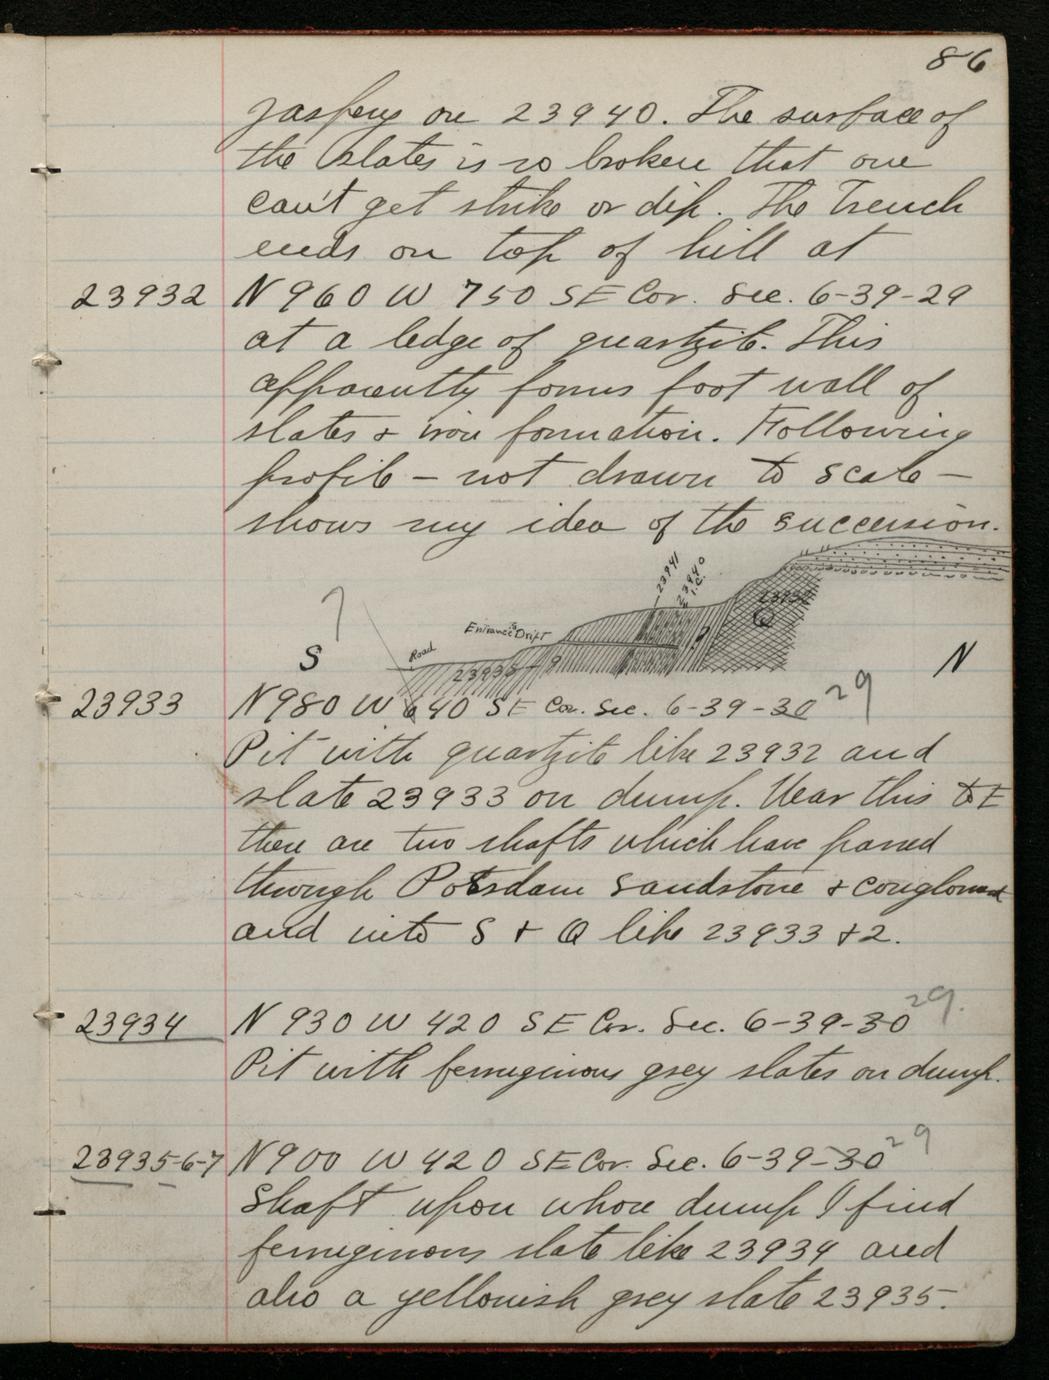 86
jaspery ore 23940. The surface of
the slates is so broken that one
can't get strike or dip. The Trench
ends on top of hill at
23932 N 960 W 750 SE Cor. Sec. 6-39-29
at a ledge of quartzite. This
apparently forms foot wall of
slates & iron formation. Following
profile – not drawn to scale –
shows my idea of the succession.
23941
23940
I.C.
23932
Q
?
Entrance to Drift
?
Road
S
N
23935 - ?
23933 N 980 W 640 SE Cor. Sec. 6-39-30 29
Pit with quartzite like 23932 and
slate 23933 on dump. Near this to E
there are two shafts which have passed
through Potsdam Sandstone & conglomerat
and into S & Q like 23933 & 2.
23934 N 930 W 420 SE Cor. Sec. 6-39-30 29.
Pit with ferruginous grey slates on dump.
23935-6-7 N 900 W 420 SE Cor. Sec. 6-39-30 29
Shaft upon whose dump I find
ferruginous slate like 23934 and
also a yellowish grey slate 23935.